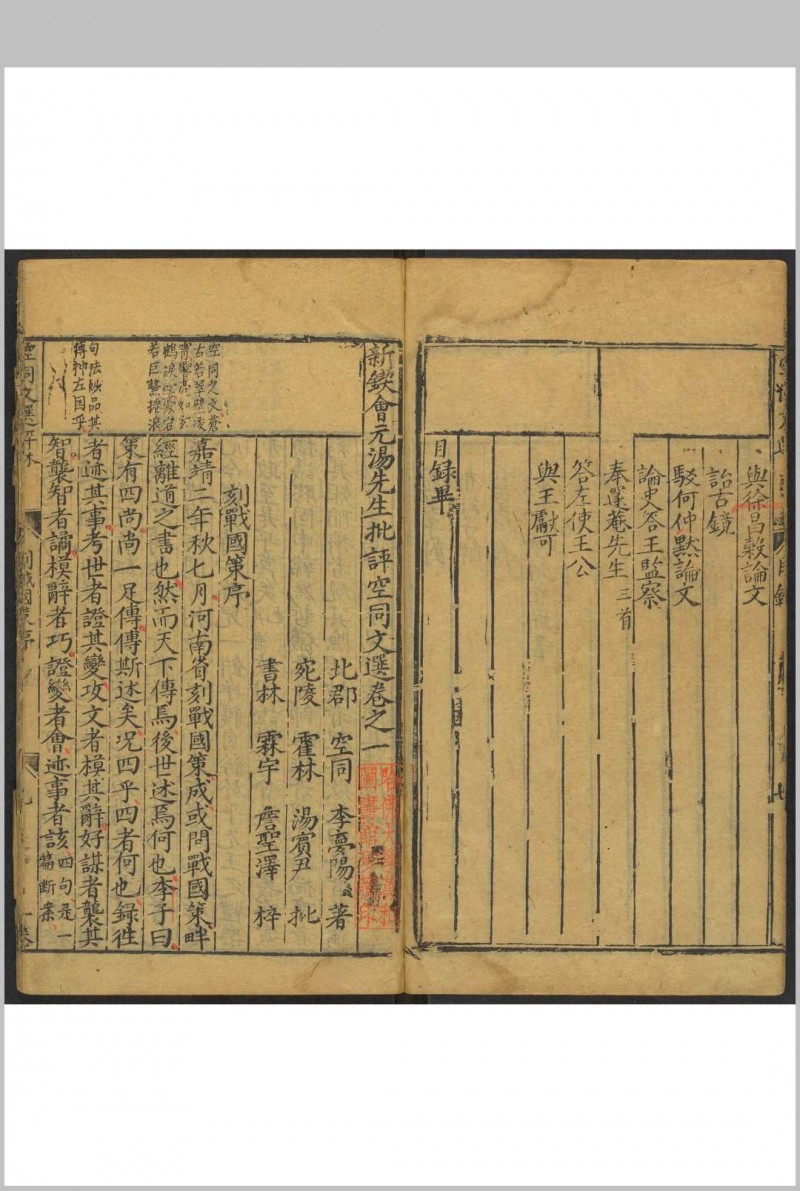 與徐昌穀論文
詒古鏡
駁何仲默論文
論史答王監察
奉邃菴先生 三首
答左使王公
與王獻可
目録畢
新鍥會元湯先生批評空同文選卷之一
北郡 空同 李夢陽 著
宛陵 霍林 湯賓尹 批
書林 霖宇 詹聖澤 梓
刻戰國策序
空同之文蒼
古若翠壁
若巨鰲搏浪
嘉靖二年秋七月河南省刻戰國策成或問戰國策畔
經離道之書也然而天下傳焉後世述焉何也李子曰
策有四尚尚一足傳傳斯述矣况四乎四者何也録徃
者迹其事考世者證其變攻文者模其辭好謀者襲其
句法
傳神左国乎
智襲智者譎模辭者巧證變者會迹事者該四句是一
篇断案
空同文選評林
刻戰國策序